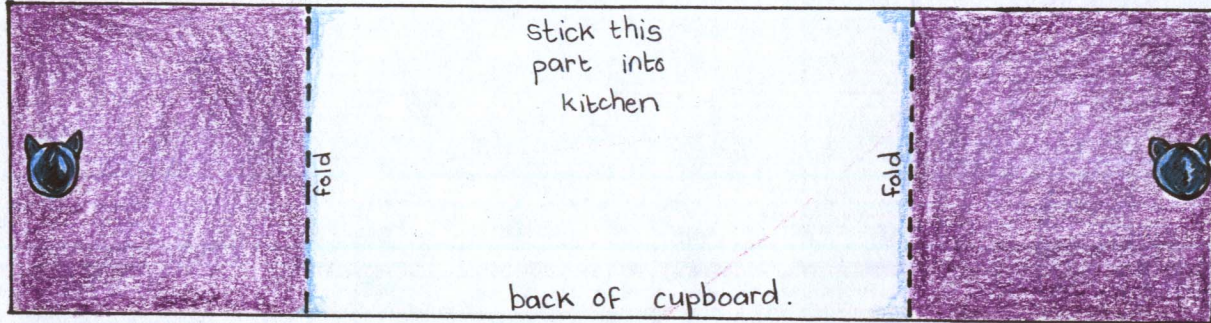 stick this
part into
kitchen
fold
fold
back of cupboard.